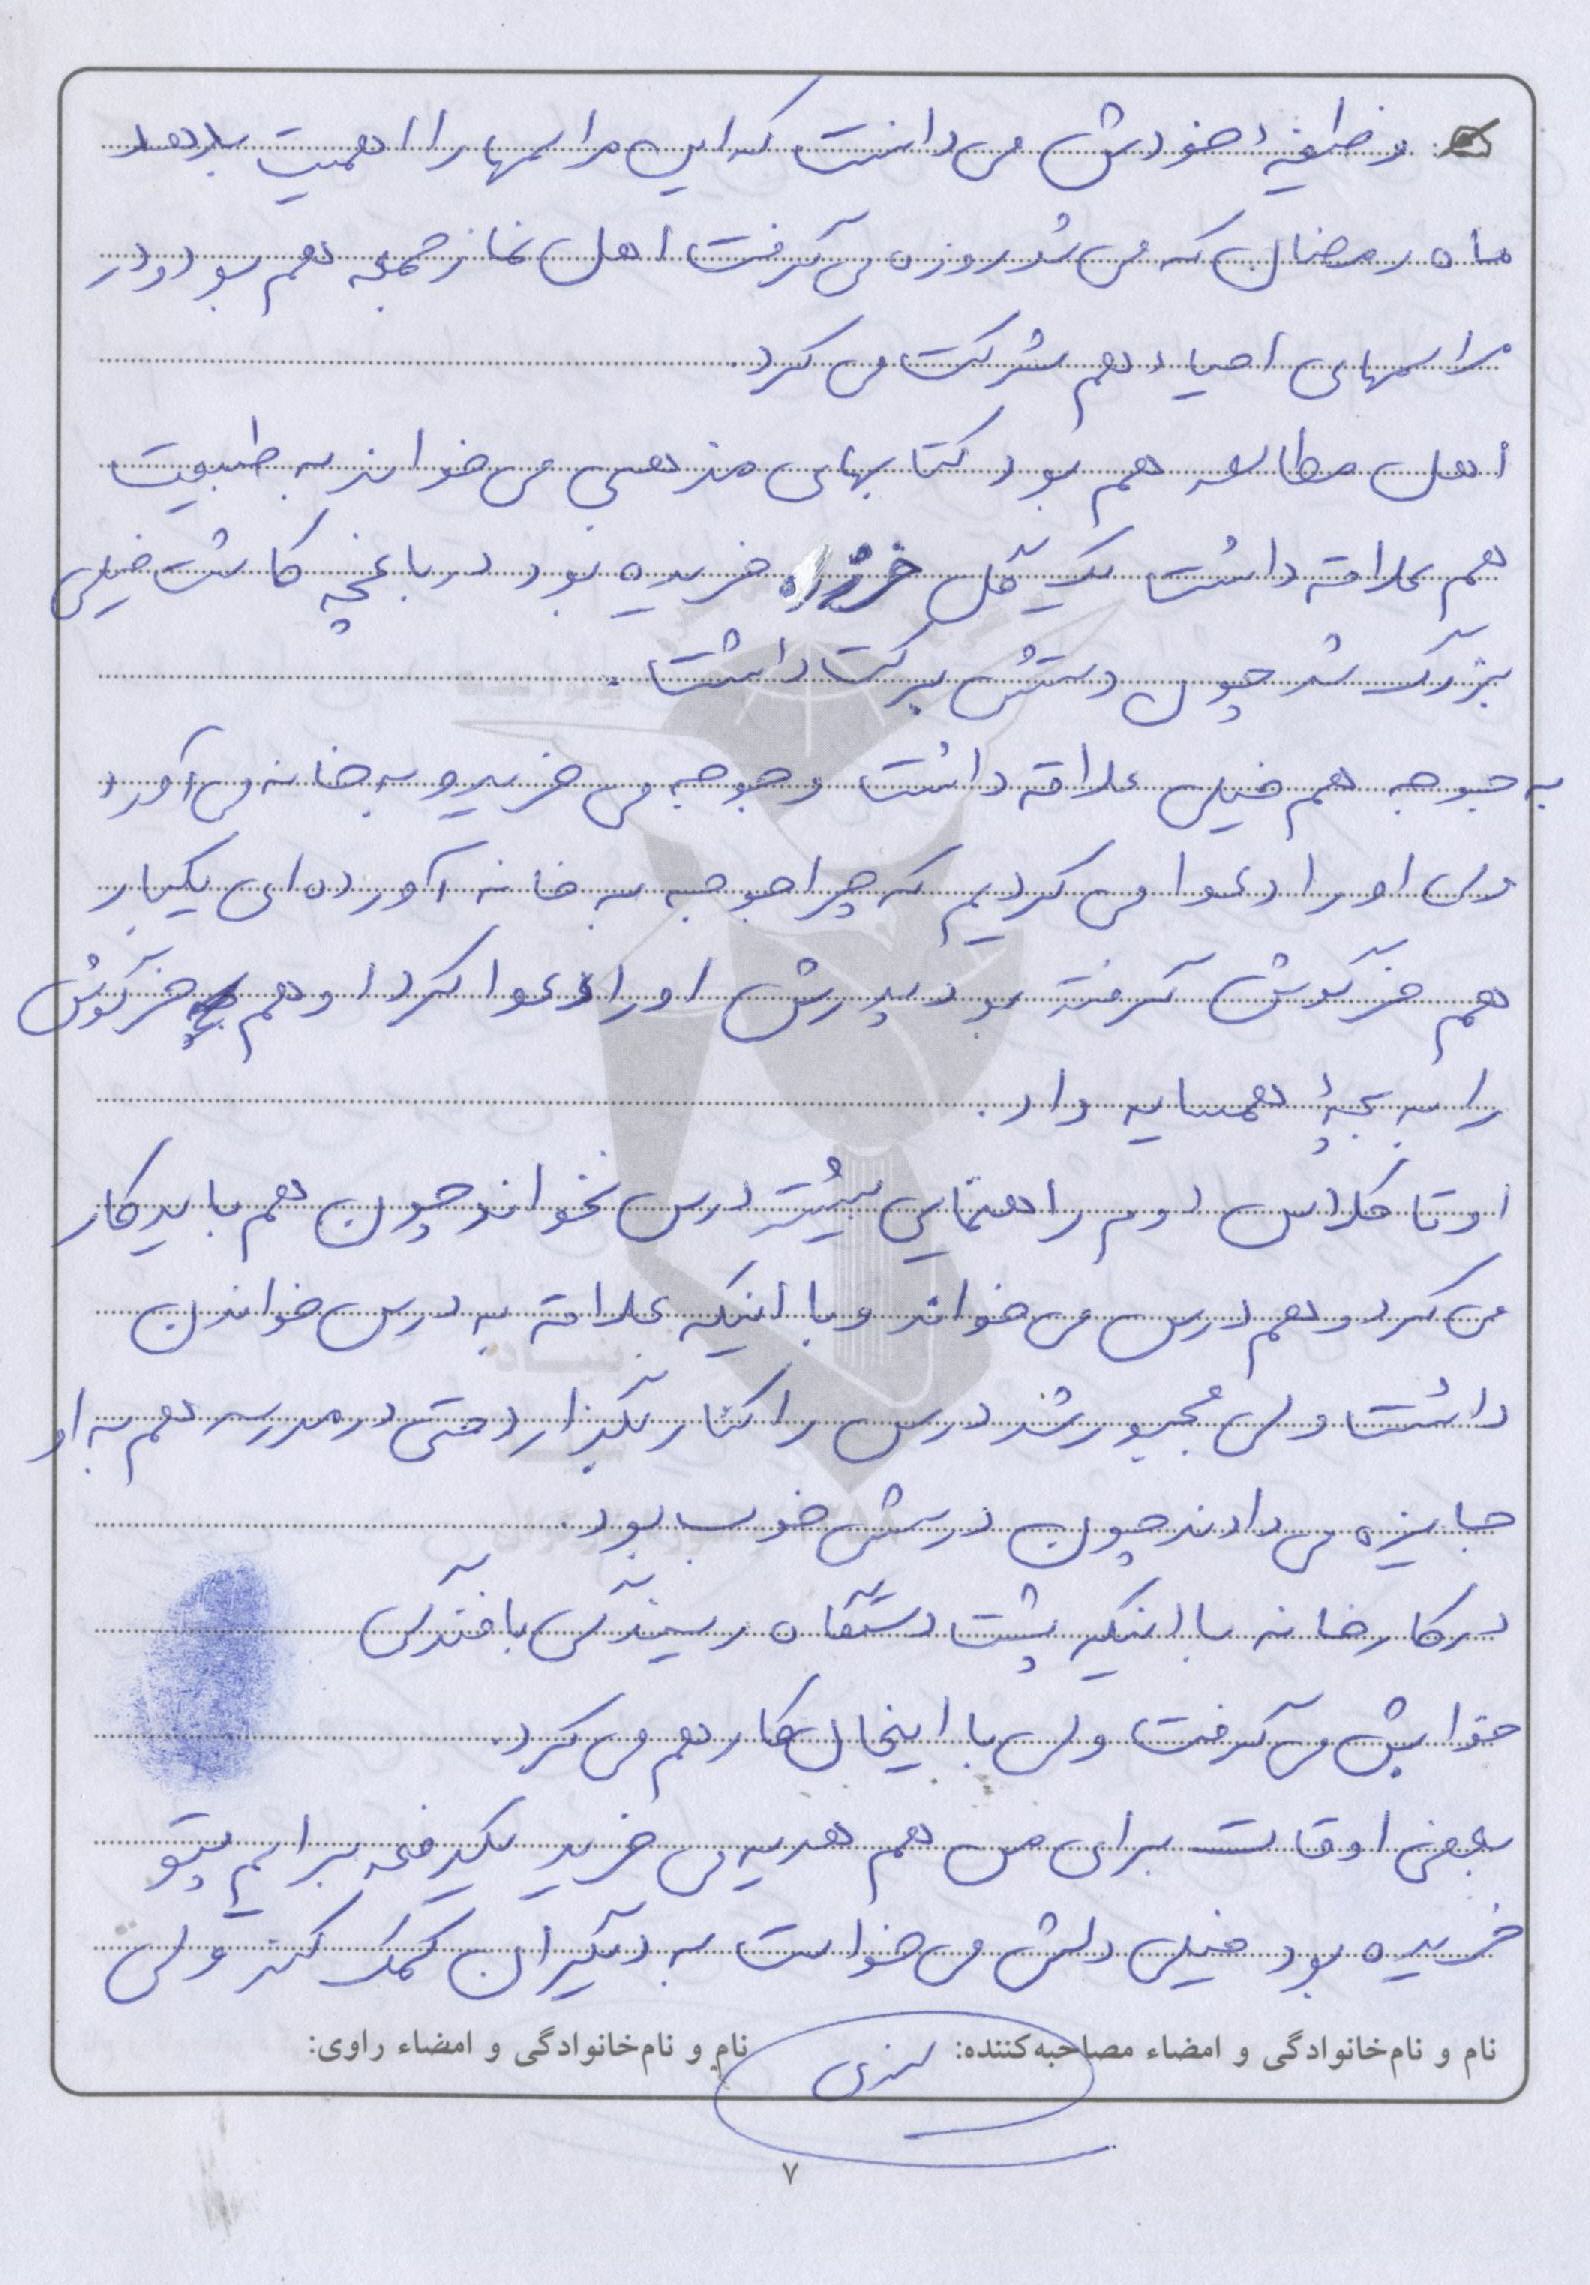 وظیفهٔ خودش می‌دانست که این مراسمها را اهمیت بدهد
ماه رمضان که می‌شد روزه می‌گرفت اهل نماز جمعه هم بود و در
مراسمهای احیاء هم شرکت می‌کرد.
اهل مطالعه هم بود کتابهای مذهبی می‌خواند به طبیعت
هم علاقه داشت یک گل خرزه خریده بود در باغچه کاشت خیلی
بزرگ شد چون دستش برکت داشت.
به جوجه هم خیلی علاقه داشت و جوجه می‌خرید و به خانه می‌آورد
ولی او را دعوا می‌کردیم که چرا جوجه به خانه آورده‌ای یکبار
هم خرگوش گرفته بود پدرش او را دعوا کرد او هم خرگوش
را به بچهٔ همسایه داد.
او تا کلاس دوم راهنمایی بیشتر درس نخواند چون هم باید کار
می‌کرد و هم درس می‌خواند و با اینکه علاقه به درس خواندن
داشت ولی مجبور شد درس را کنار بگذارد حتی در مدرسه هم به او
جایزه می‌دادند چون درسش خوب بود.
در کارخانه با اینکه پشت دستگاه ریسندگی بافندگی
خوابش می‌گرفت ولی با اینحال کار هم می‌کرد.
بعضی اوقات برای من هم هدیه می‌خرید یکدفعه برایم پتو
خریده بود خیلی دلش می‌خواست به دیگران کمک کند ولی
نام و نام‌خانوادگی و امضاء مصاحبه‌کننده: نام و نام‌خانوادگی و امضاء راوی:
۷